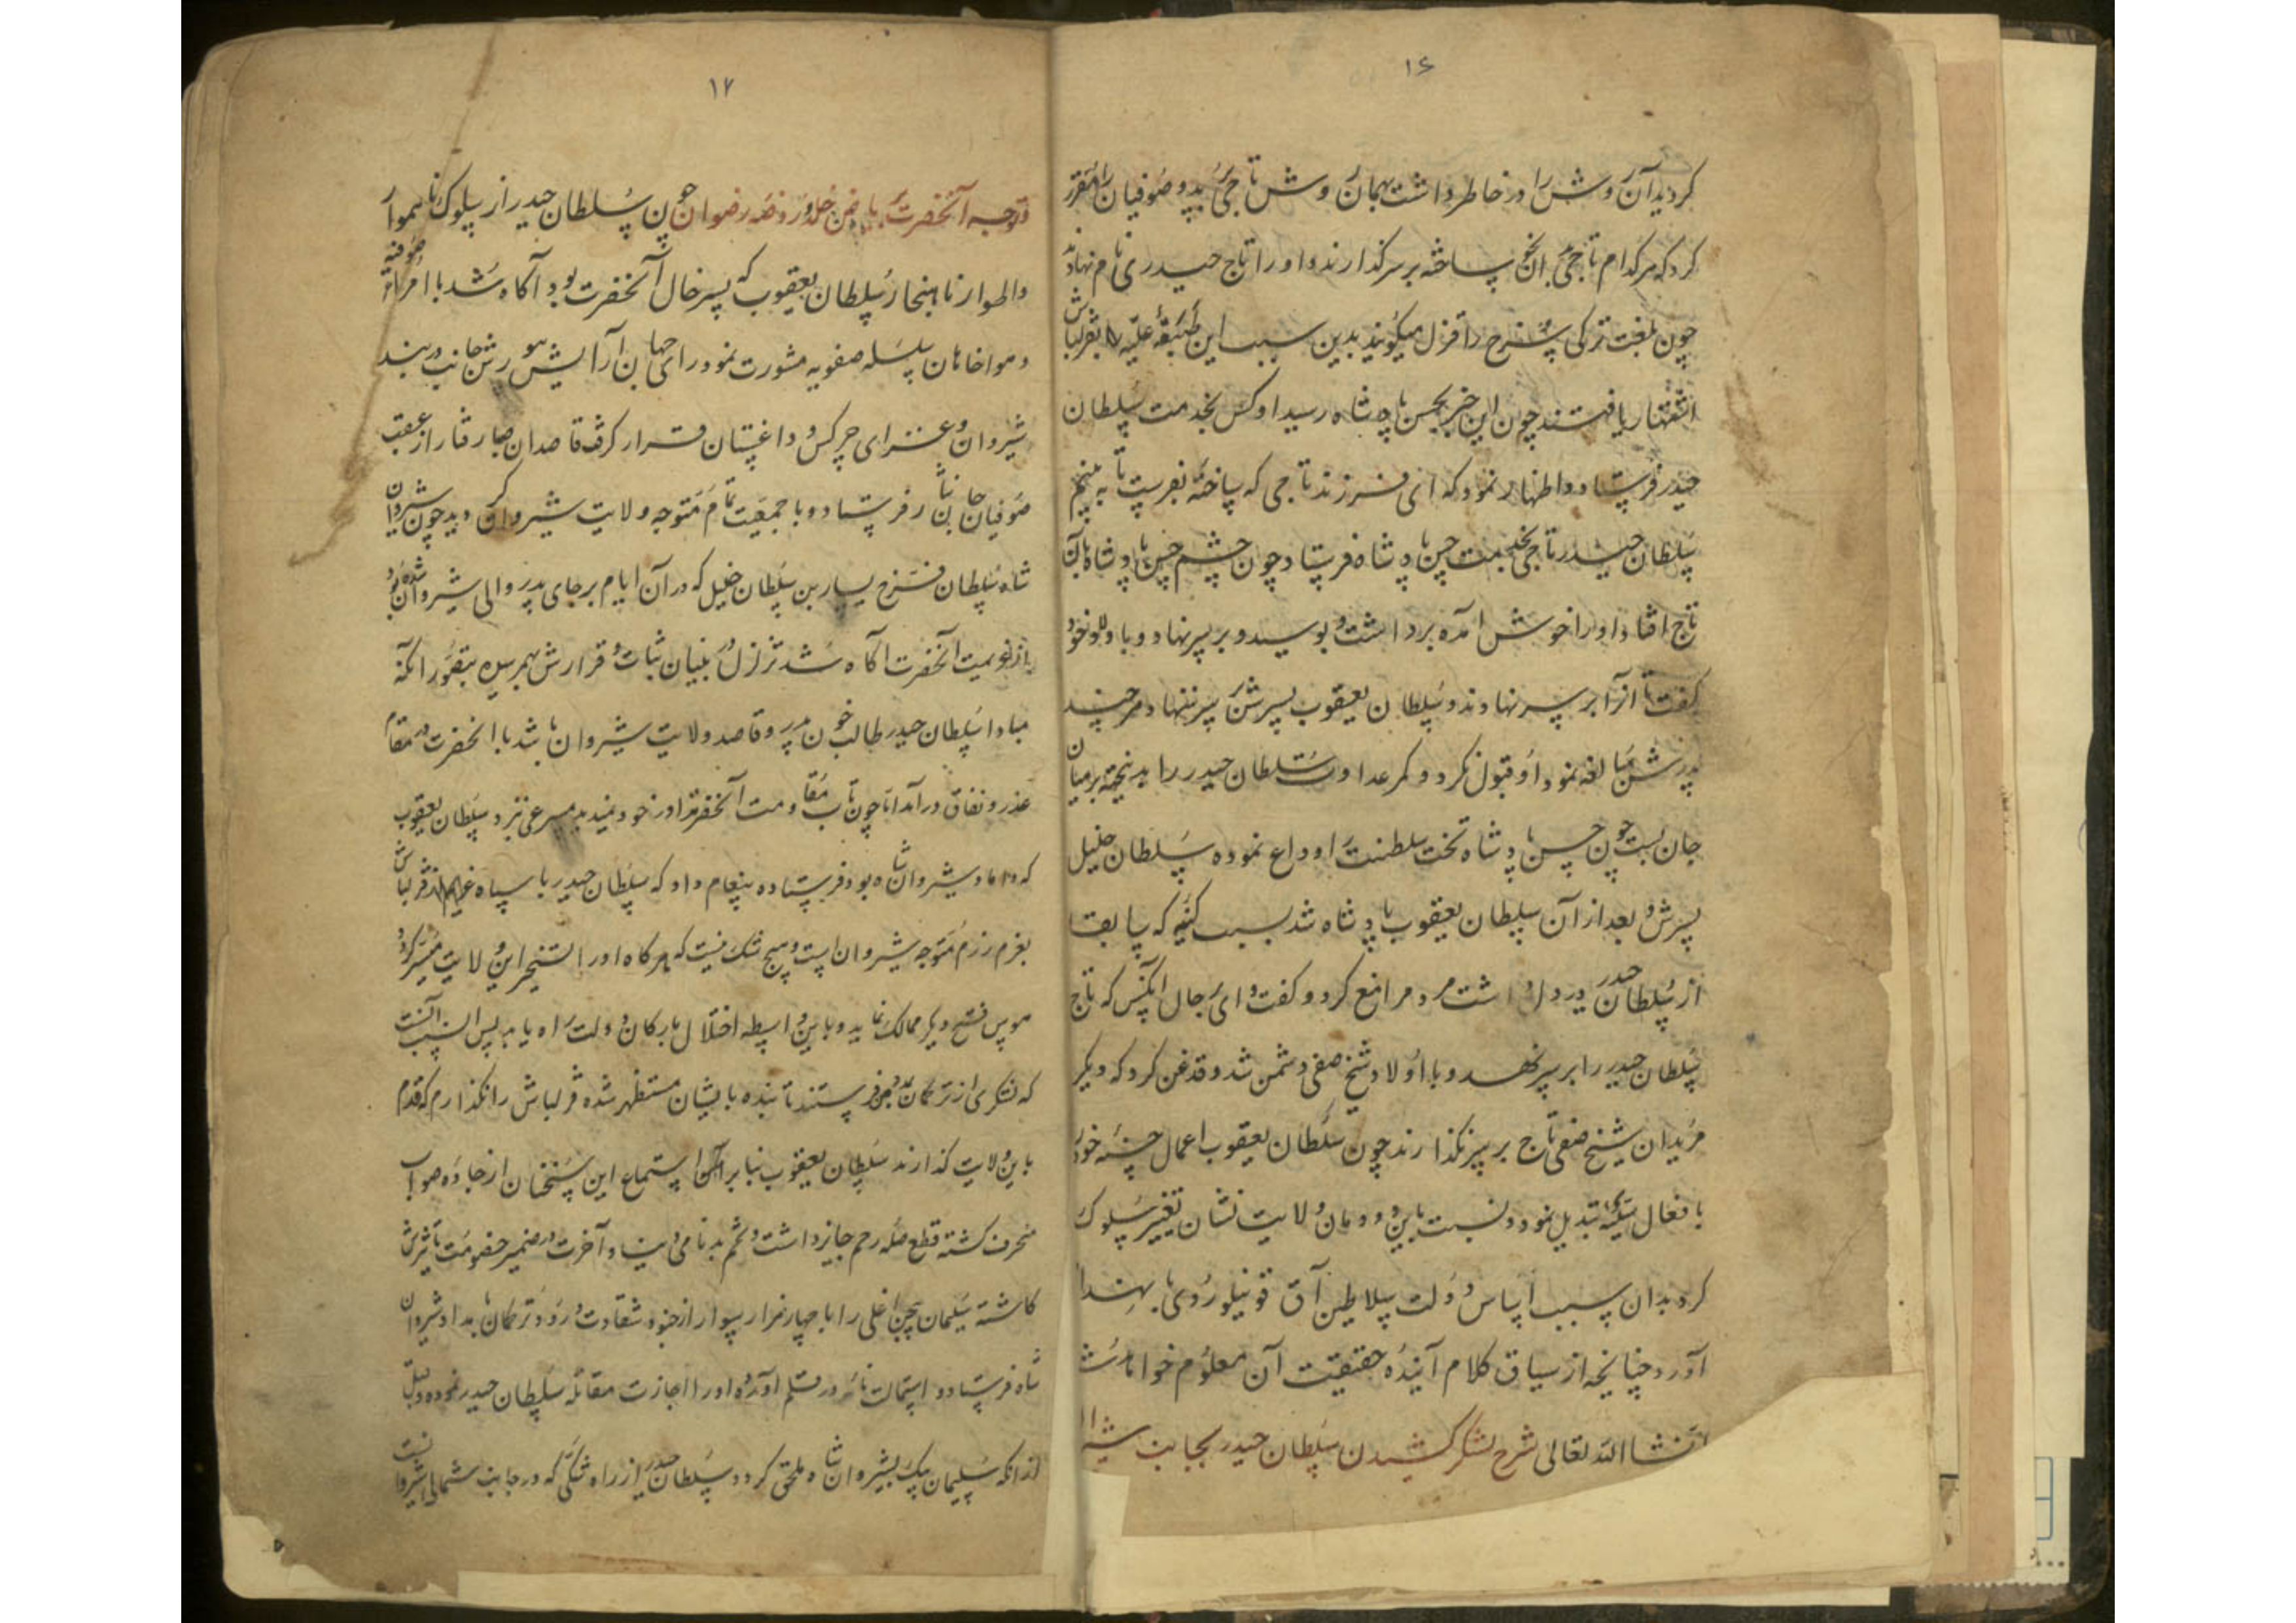 ۱۶
کردید آن روش را در خاطر داشت بهمان روش تاجی برید و صوفیان را مقرر
کرد که هر کدام تاجی بدان نحو ساخته بر سر گذارند و او را تاج حیدری نام نهادند
چون بلغت ترکی سرخ را قزل میگویند بدین سبب این طبقه علیه را بقزلباش
اشتهار یافتند چون این خبر بحسن پادشاه رسید او کس بخدمت سلطان
حیدر فرستاد و اظهار نمود که ای فرزند تاجی که ساخته بفرست تا به بینم
سلطان حیدر تاجی بخدمت حسن پادشاه فرستاد چون چشم حسن پادشاه بآن
تاج افتاد او را خوش آمده برداشت و بوسید و بر سر نهاد و باولاد خود
گفت تا آنرا بر سر نهادند و سلطان یعقوب پسرش بر سر ننهاد هر چند
پدرش مبالغه نمود او قبول نکرد و کمر عداوت سلطان حیدر را بر میان
جان بست چون حسن پادشاه تخت سلطنت را وداع نموده سلطان خلیل
پسرش و بعد از آن سلطان یعقوب پادشاه شد بسبب کینه که سابقا
از سلطان حیدر در دل داشت مردم را منع کرد و گفت وای بر حال آنکس که تاج
سلطان حیدر را بر سر نهد و با اولاد شیخ صفی دشمن شد و قدغن کرد که دیگر
مریدان شیخ صفی تاج بر سر نگذارند چون سلطان یعقوب اعمال حسنه خود را
بافعال سیئه تبدیل نمود و نسبت باین دودمان ولایت نشان تغییر سلوک
کرد بدان سبب اساس دولت سلاطین آق قوینلو روی بانهدام
آورد چنانچه از سیاق کلام آینده حقیقت آن معلوم خواهد شد
انشاالله تعالی شرح لشکر کشیدن سلطان حیدر بجانب شیروان
۱۷
و توجه آنحضرت روضه رضوان چون سلطان حیدر از سلوک ناهموار
و اطوار ناهنجار سلطان یعقوب که پسر خال آنحضرت بود آگاه شد با امراء صوفیه
و هواخاهان سلسله صفویه مشورت نمود رای جهان آرایش بر یورش جانب دربند
شیروان و غزای چرکس و داغستان قرار گرفت قاصدان صبا رفتار از عقب
صوفیان جان نثار فرستاد و با جمعیت تمام متوجه ولایت شیروان گردید چون شیروان
شاه سلطان فرخ یسار بن سلطان خلیل که در آن ایام بر جای پدر والی شیروان شده بود
از عزیمت آنحضرت آگاه شد تزلزل در بنیان ثبات و قرارش بهم رسیده بتصور آنکه
مبادا سلطان حیدر طالب خون پدر و قاصد ولایت شیروان باشد با آنحضرت در مقام
عذر و نفاق در آمد اما چون تاب مقاومت آنحضرت در خود ندید مسرعی نزد سلطان یعقوب
که داماد شیروان شاه بود فرستاده پیغام داد که سلطان حیدر با سپاه قزلباش
بعزم رزم متوجه شیروان است و هیچ شک نیست که هر گاه او را تسخیر این ولایت میسر گردد
هوس فتح دیگر ممالک نماید و باین واسطه اختلال بارکان دولت راه یابد پس انسب آنست
که لشکری از ترکمان بمدد من فرستند تا بنده بایشان مستظهر شده قزلباش را نگذارم که قدم
باین ولایت گذارند سلطان یعقوب بنا بر استماع این سخنان از جاده صواب
منحرف گشته قطع صله رحم جایز داشت و تخم بدنامی دنیا و آخرت در ضمیر خصومت تأثیرش
کاشته سلیمان بیجن اغلی را با چهار هزار سوار از جنود شقاوت ورود ترکمان بامداد شیروان
شاه فرستاد و استمالت نامه در قلم آورده او را اجازت مقاتله سلطان حیدر نموده و قبل
از آنکه سلیمان بیک بشیروان شاه ملحق گردد سلطان حیدر از راه شکی که در جانب شمالی شیروانست